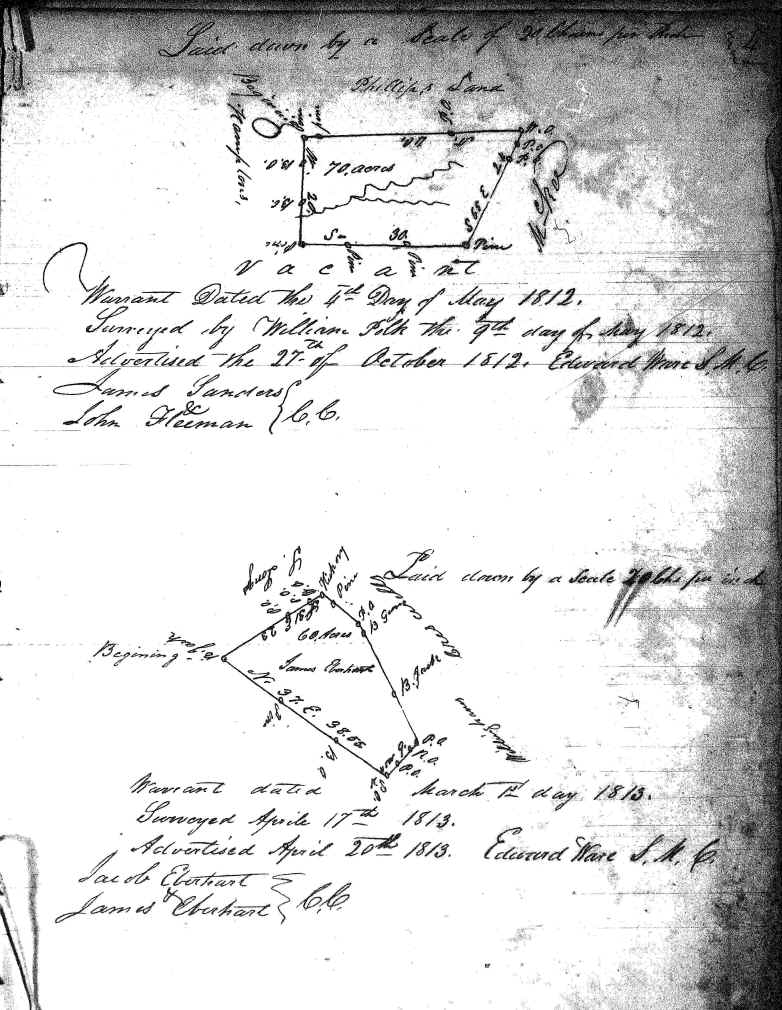 Laid down by a Scale of 20 Chains per Inch
Phillips Land
Begining
Hamptons,
P.O.
B.O.
70, acres
B.O.
20
S 65 E
24
S
30
Pine
Pine
Pine
Vacant
Warrant Dated the 4th Day of May 1812.
Surveyed by William Polk the 9th day of May 1812.
Advertised the 27th of October 1812. Edward Ware S. M. C.
James Sanders
&
John Fleeman } C.C.
Laid down by a Scale 20 Chs per inch
Hickory
Pine
P.O
B Gum
60, Acres
James Eberhart
Begining
B. Jack
N. 37. E. 38.00
B.O.
P.O.
P.O.
P.O.
Warrant dated March 1st day 1813.
Surveyed Aprile 17th 1813.
Advertised April 20th 1813. Edward Ware S. M. C
Jacob Eberhart
&
James Eberhart } C.C.